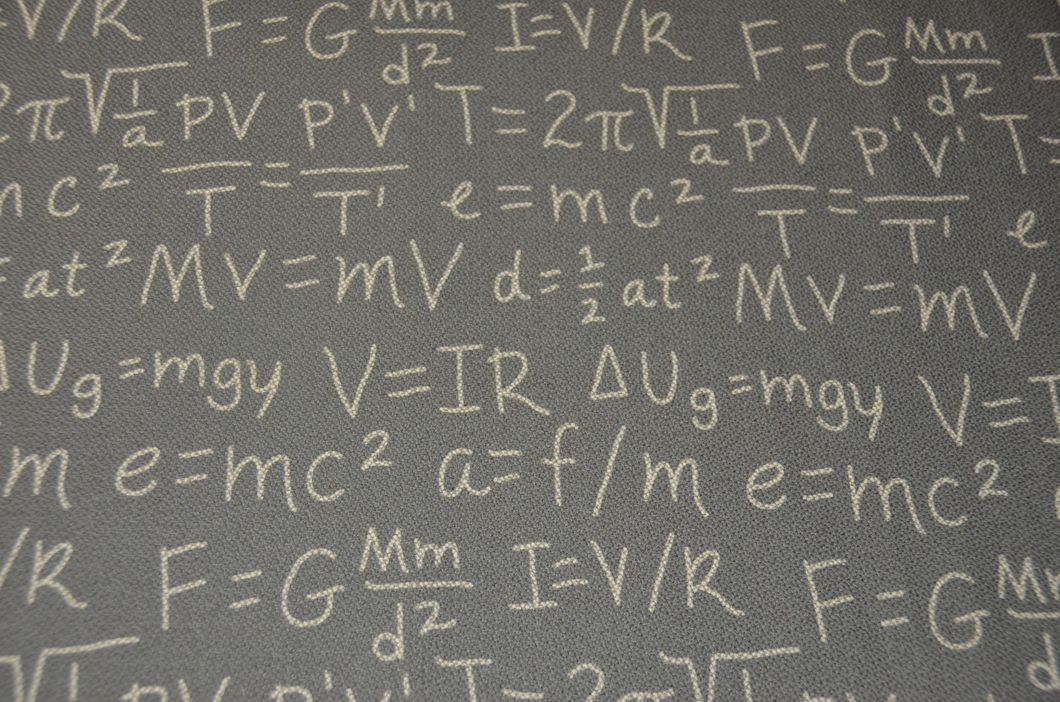 =V/R F=G Mm/d² I=V/R F=G Mm/d² I
2π√1/a PV/T=P'V'/T' T=2π√1/a PV/T=P'V'/T' T=
mc² e=mc² e
=at² Mv=mV d=½at² Mv=mV
ΔUg=mgy V=IR ΔUg=mgy V=I
m e=mc² a=f/m e=mc²
/R F=G Mm/d² I=V/R F=G Mm/d
√1 PV P'V' T=2π√1 PV